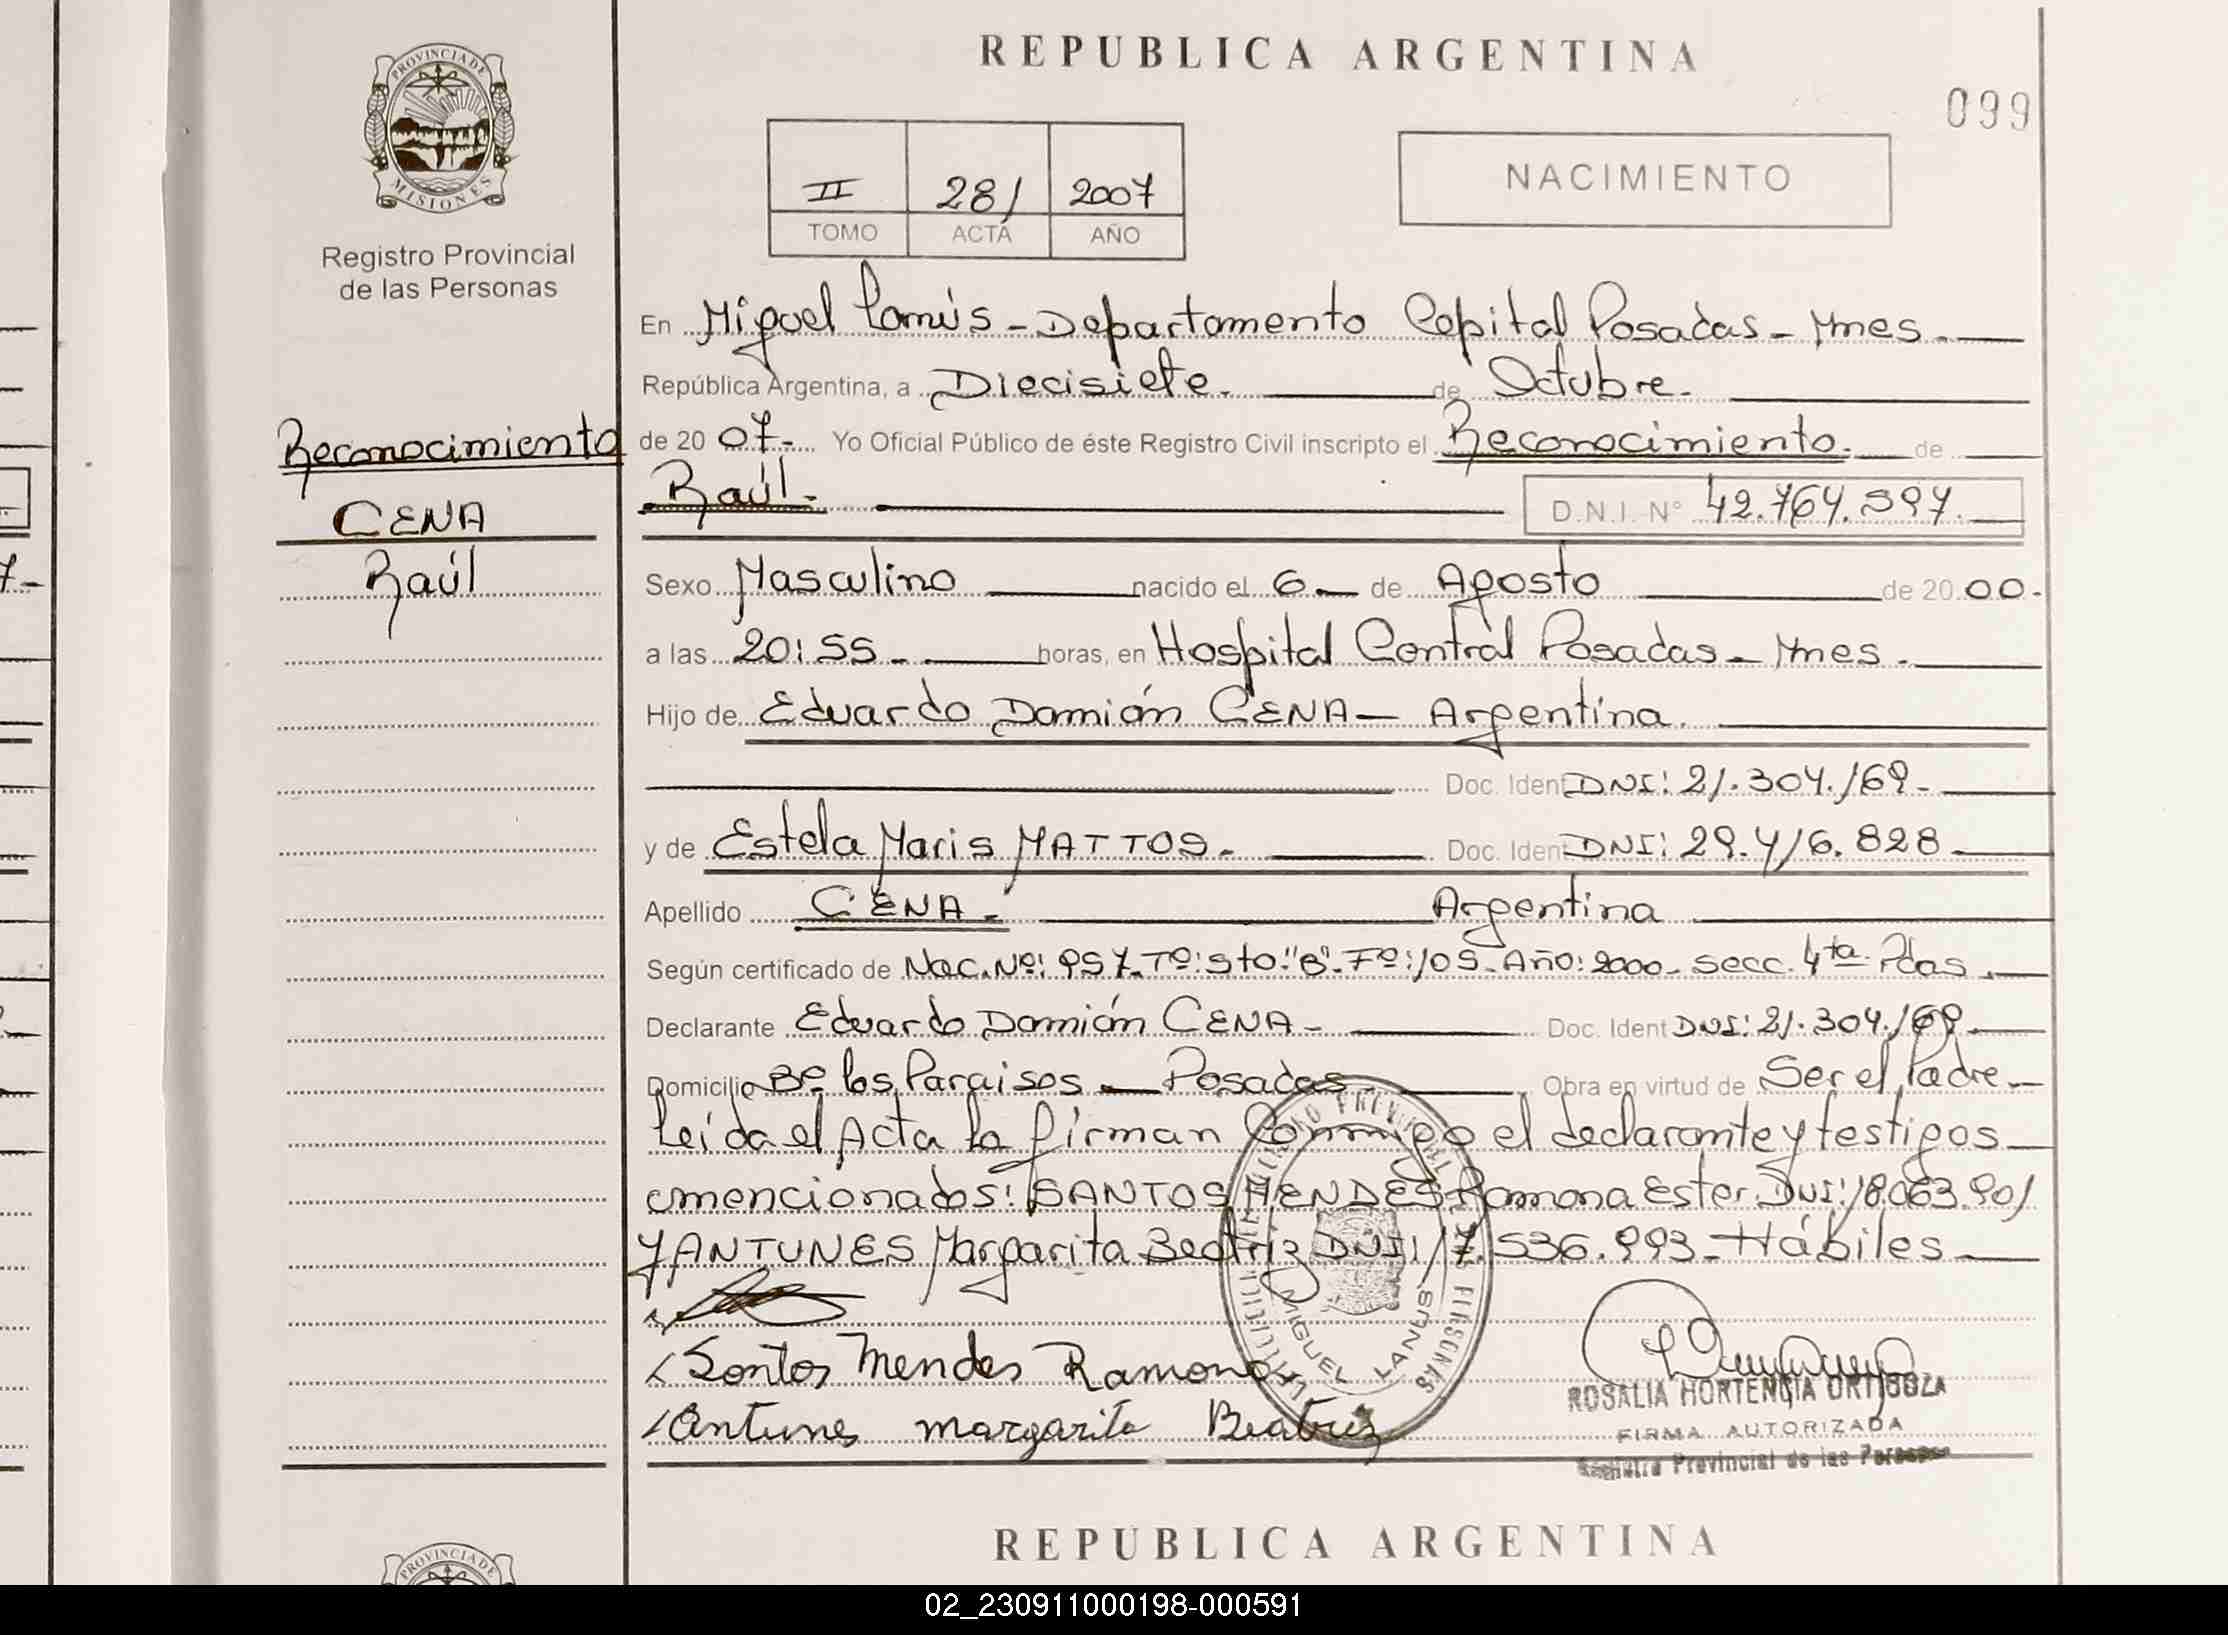 REPUBLICA ARGENTINA
099
PROVINCIA DE
MISIONES
Registro Provincial
de las Personas
II 281 2007
TOMO ACTA AÑO
NACIMIENTO
En Miguel Lanús - Departamento Capital Posadas - Mnes.
República Argentina, a Diecisiete. de Octubre.
Reconocimiento
CENA
Raúl
de 20 07.- Yo Oficial Público de éste Registro Civil inscripto el Reconocimiento. de
Raúl.- D.N.I. Nº 42.764.597.
Sexo Masculino nacido el 6 de Agosto de 20 00.
a las 20:55 horas, en Hospital Central Posadas - Mnes.
Hijo de Eduardo Damián CENA - Argentina.
Doc. Ident DNI: 21.304.169.-
y de Estela Maris MATTOS. Doc. Ident DNI: 29.416.828.
Apellido CENA. Argentina
Según certificado de Nac. Nº: 957. Tº: 5to. "B". Fº: 105. Año: 2000. Secc. 4ta. Pdas.
Declarante Eduardo Damián CENA - Doc. Ident DNI: 21.304.169.
Domicilio Bº los Paraisos - Posadas Obra en virtud de Ser el Padre.
Leída el Acta la firman Conmigo el declarante y testigos
mencionados: SANTOS MENDES Ramona Ester. DNI: 18.063.901
Y ANTUNES Margarita Beatriz DNI: 17.536.993 - Hábiles
Santos Mendes Ramona
Antunes Margarita Beatriz
MIGUEL LANUS
ROSALIA HORTENCIA ORTIGOZA
FIRMA AUTORIZADA
Registro Provincial de las Personas
PROVINCIA DE
REPUBLICA ARGENTINA
02_230911000198-000591